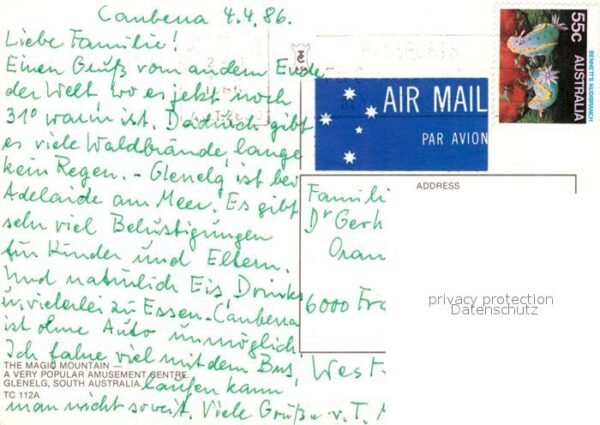 Canbena 4.4.86.
Liebe Familie!
Einen Gruß vom andern Ende
der Welt, wo es jetzt noch
31° warm ist. Dadurch gibt
es viele Waldbrände, lange
kein Regen. - Glenelg ist bei
Adelaide am Meer. Es gibt
sehr viel Belustigungen
für Kinder und Eltern.
Und natürlich Eis, Drinks
u. vielerlei zu Essen. Canbena
ist ohne Auto unmöglich
Ich fahre viel mit dem Bus,
laufen kann
man nicht so weit. Viele Grüße v. T. M
THE MAGIC MOUNTAIN —
A VERY POPULAR AMUSEMENT CENTRE,
GLENELG, SOUTH AUSTRALIA.
TC 112A
55c
AUSTRALIA
BENNETT'S NUDIBRANCH
AIR MAIL
PAR AVION
ADDRESS
Famili
Dr Gerh
Oran
6000 Fra
West-
privacy protection
Datenschutz